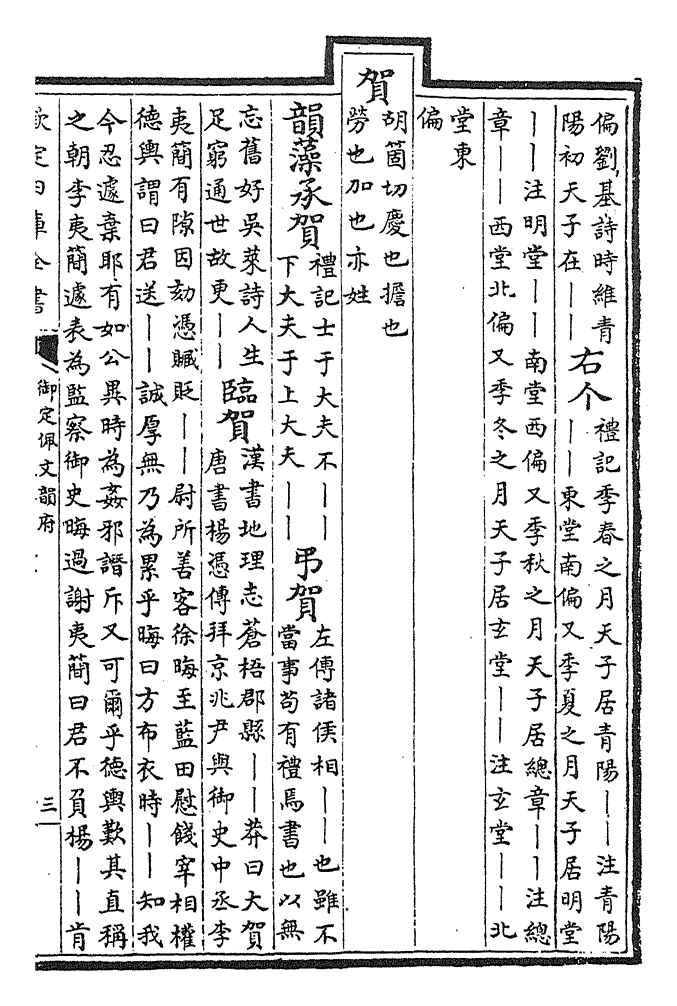 偏劉基詩時維青
陽初天子在｜｜
右个
禮記季春之月天子居青陽｜｜注青陽
｜｜東堂南偏又季夏之月天子居明堂
｜｜注明堂｜｜南堂西偏又季秋之月天子居總章｜｜注總
章｜｜西堂北偏又季冬之月天子居玄堂｜｜注玄堂｜｜北
堂東
偏
賀
胡箇切慶也擔也
勞也加也亦姓
韻藻承賀
禮記士于大夫不｜｜
下大夫于上大夫｜｜
弔賀
左傳諸侯相｜｜也雖不
當事苟有禮焉書也以無
忘舊好吳萊詩人生
足窮通世故更｜｜
臨賀
漢書地理志蒼梧郡縣｜｜莽曰大賀
唐書楊憑傳拜京兆尹與御史中丞李
夷簡有隙因劾憑贓貶｜｜尉所善客徐晦至藍田慰餞宰相權
德輿謂曰君送｜｜誠厚無乃為累乎晦曰方布衣時｜｜知我
今忍遽棄耶有如公異時為姦邪譖斥又可爾乎德輿歎其直稱
之朝李夷簡遽表為監察御史晦過謝夷簡曰君不負楊｜｜肯
欽定四庫全書
御定佩文韻府
三